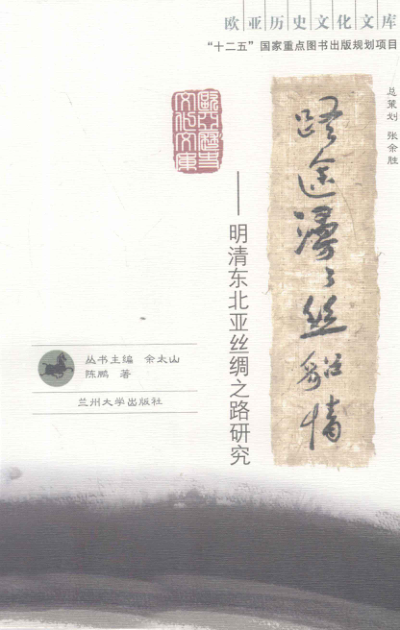 欧亚历史文化文库
“十二五”国家重点图书出版规划项目
总策划 张余胜
路途漫々丝貂情
——明清东北亚丝绸之路研究
歐亞歷史
文化文庫
丛书主编 余太山
陈鹏 著
兰州大学出版社